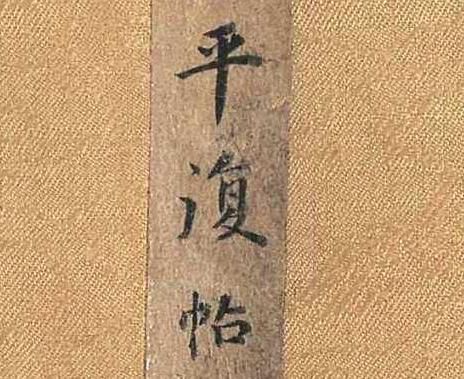 平復帖